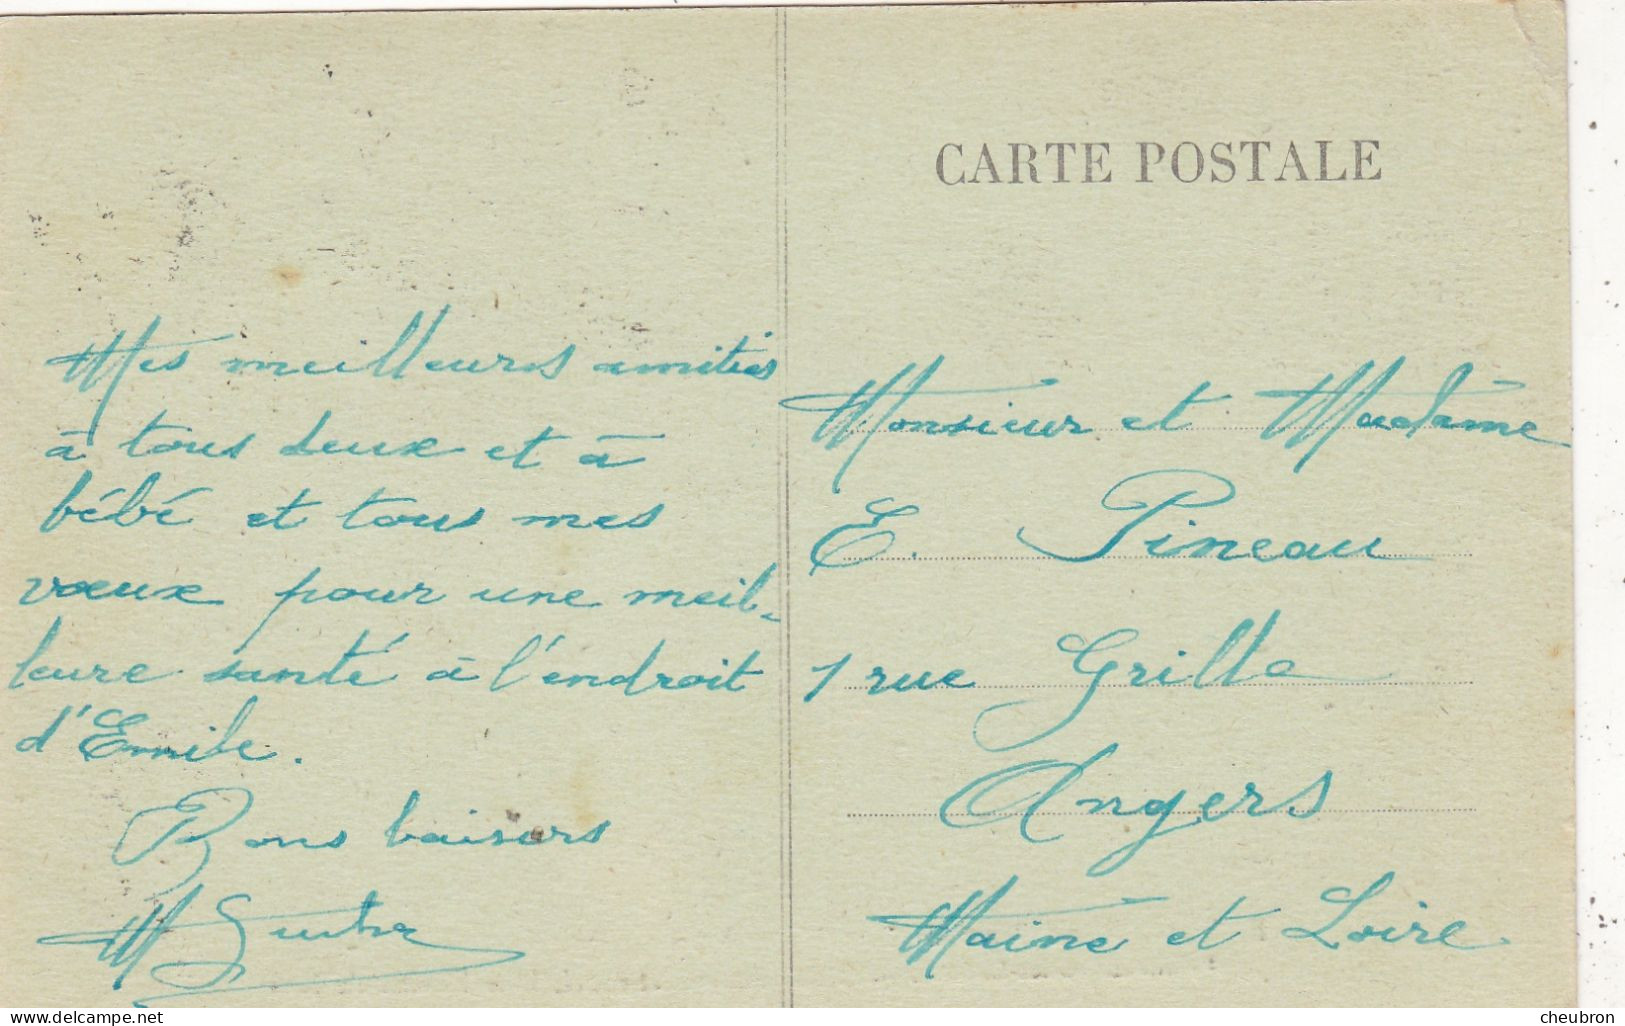 CARTE POSTALE
Mes meilleures amitiés
à tous deux et à
bébé et tous mes
vœux pour une meil-
leure santé à l'endroit
d'Emile.
Bons baisers
M
Monsieur et Madame
E. Pineau
1 rue Grille
Angers
Maine et Loire
delcampe.net
cheubron